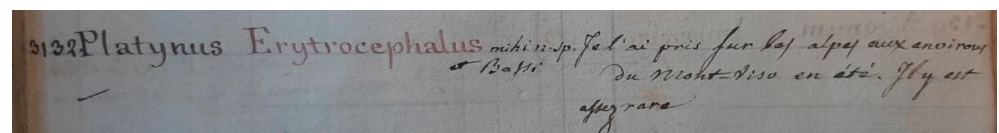 3132 Platynus Erytrocephalus mihi n. sp. Je l'ai pris sur les alpes aux environs
et Bassi du Mont-Viso en été. Il y est
assez rare